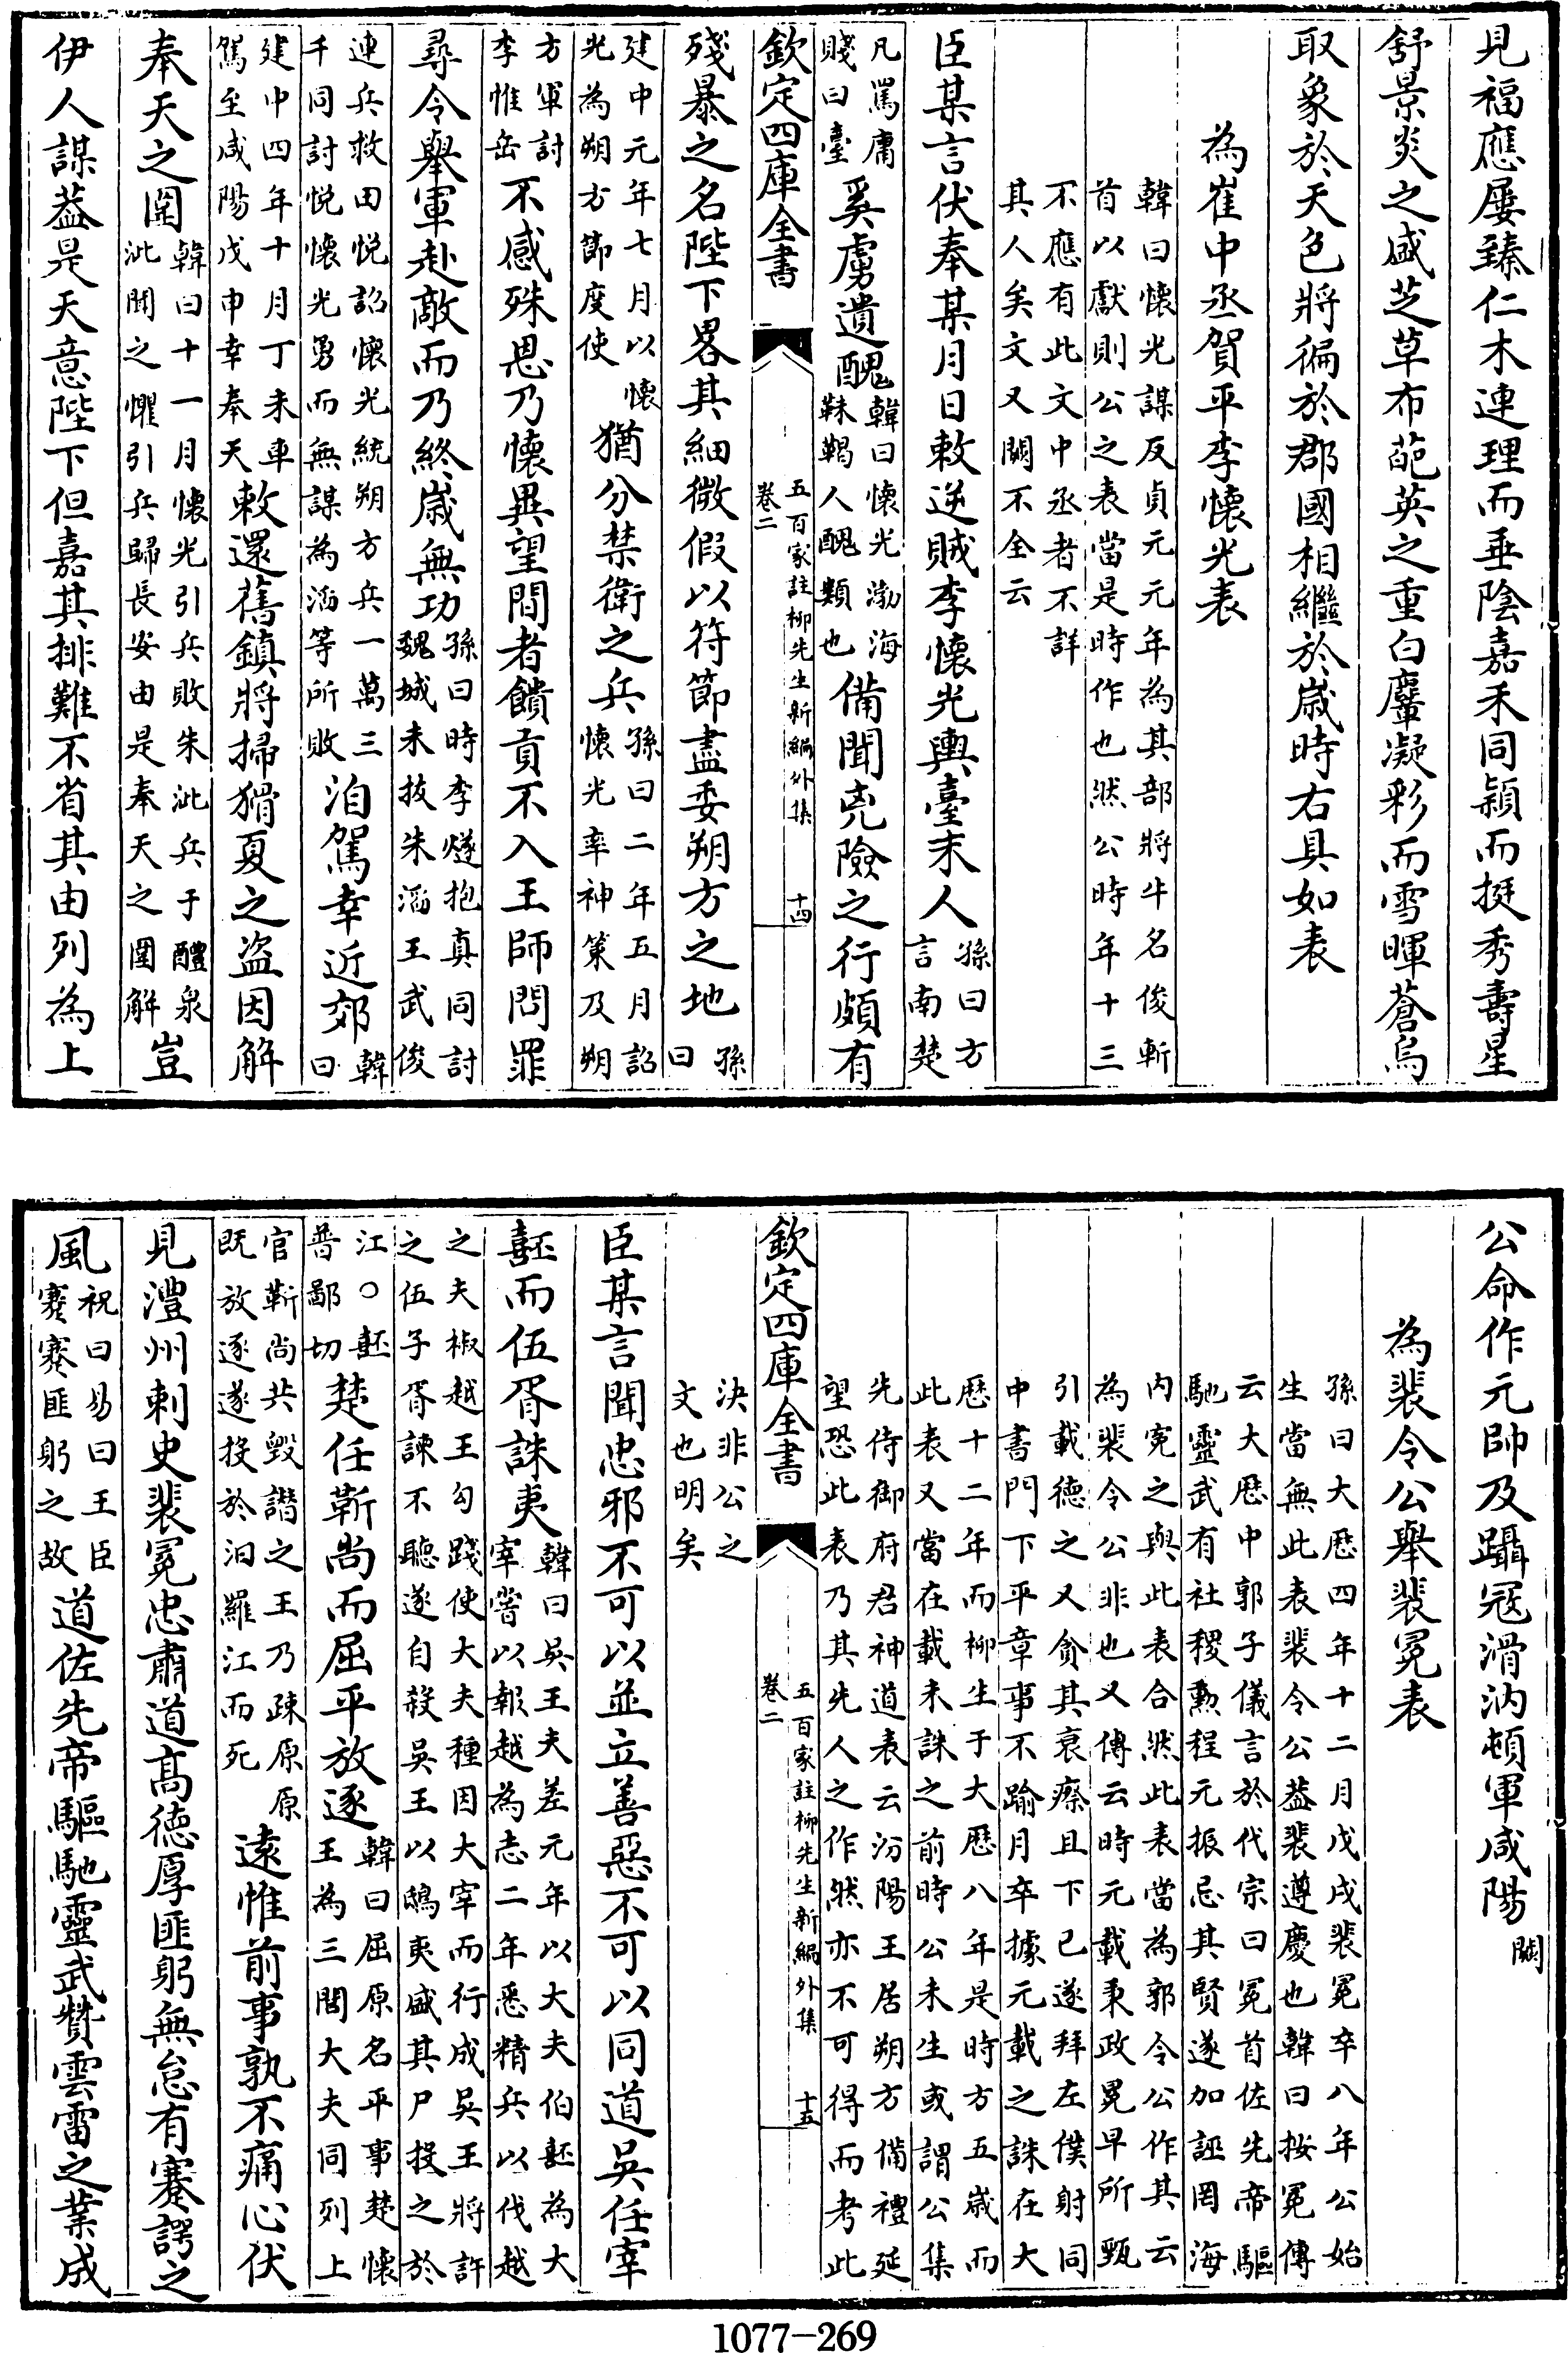 見福應屢臻仁木連理而垂陰嘉禾同穎而挺秀壽星
舒景炎之盛芝草布葩英之重白麞凝彩而雪暉蒼烏
取象於天色將徧於郡國相繼於歲時右具如表
為崔中丞賀平李懷光表
韓曰懷光謀反貞元元年為其部將牛名俊斬
首以獻則公之表當是時作也然公時年十三
不應有此文中丞者不詳
其人矣文又闕不全云
臣某言伏奉某月日敕逆賊李懷光輿臺末人孫曰方言南楚
凡罵庸賤曰臺奚虜遺醜韓曰懷光渤海靺鞨人醜類也備聞兇險之行頗有
欽定四庫全書
五百家註柳先生新編外集
卷二
十四
殘暴之名陛下畧其細微假以符節盡委朔方之地孫曰
建中元年七月以懷光為朔方節度使猶分禁衛之兵孫曰二年五月詔懷光率神策及朔
方軍討李惟岳不感殊恩乃懷異望間者饋貢不入王師問罪
尋令舉軍赴敵而乃終歲無功孫曰時李燧抱真同討魏城未拔朱滔王武俊
連兵救田悅詔懷光統朔方兵一萬三千同討悅懷光勇而無謀為滔等所敗洎駕幸近郊韓曰
建中四年十月丁未車駕至咸陽戊申幸奉天敕還舊鎮將掃猾夏之盜因解
奉天之圍韓曰十一月懷光引兵敗朱泚兵于醴泉泚聞之懼引兵歸長安由是奉天之圍解豈
伊人謀葢是天意陛下但嘉其排難不省其由列為上
公命作元帥及躡寇滑汭頓軍咸陽闕
為裴令公舉裴冕表
孫曰大厯四年十二月戊戌裴冕卒八年公始
生當無此表裴令公葢裴遵慶也韓曰按冕傳
云大厯中郭子儀言於代宗曰冕首佐先帝驅
馳靈武有社稷勲程元振忌其賢遂加誣罔海
内寃之與此表合然此表當為郭令公作其云
為裴令公非也又傳云時元載秉政冕早所甄
引載德之又貪其衰瘵且下已遂拜左僕射同
中書門下平章事不踰月卒據元載之誅在大
厯十二年而柳生于大厯八年是時方五歲而
此表又當在載未誅之前時公未生或謂公集
先侍御府君神道表云汾陽王居朔方備禮延
望恐此表乃其先人之作然亦不可得而考此
決非公之
文也明矣
欽定四庫全書
五百家註柳先生新編外集
卷二
十五
臣某言聞忠邪不可以並立善惡不可以同道吳任宰
嚭而伍胥誅夷韓曰吳王夫差元年以大夫伯嚭為大宰嘗以報越為志二年悉精兵以伐越
之夫椒越王勾踐使大夫種因大宰而行成吳王將許之伍子胥諫不聽遂自殺吳王以鴟夷盛其尸投之於
江○嚭普鄙切楚任靳尚而屈平放逐韓曰屈原名平事楚懷王為三閭大夫同列上
官靳尚共毀譖之王乃疎原原既放逐遂投於汨羅江而死遠惟前事孰不痛心伏
見澧州刺史裴冕忠肅道高德厚匪躬無怠有蹇諤之
風祝曰易曰王臣蹇蹇匪躬之故道佐先帝驅馳靈武贊雲雷之業成
1077-269